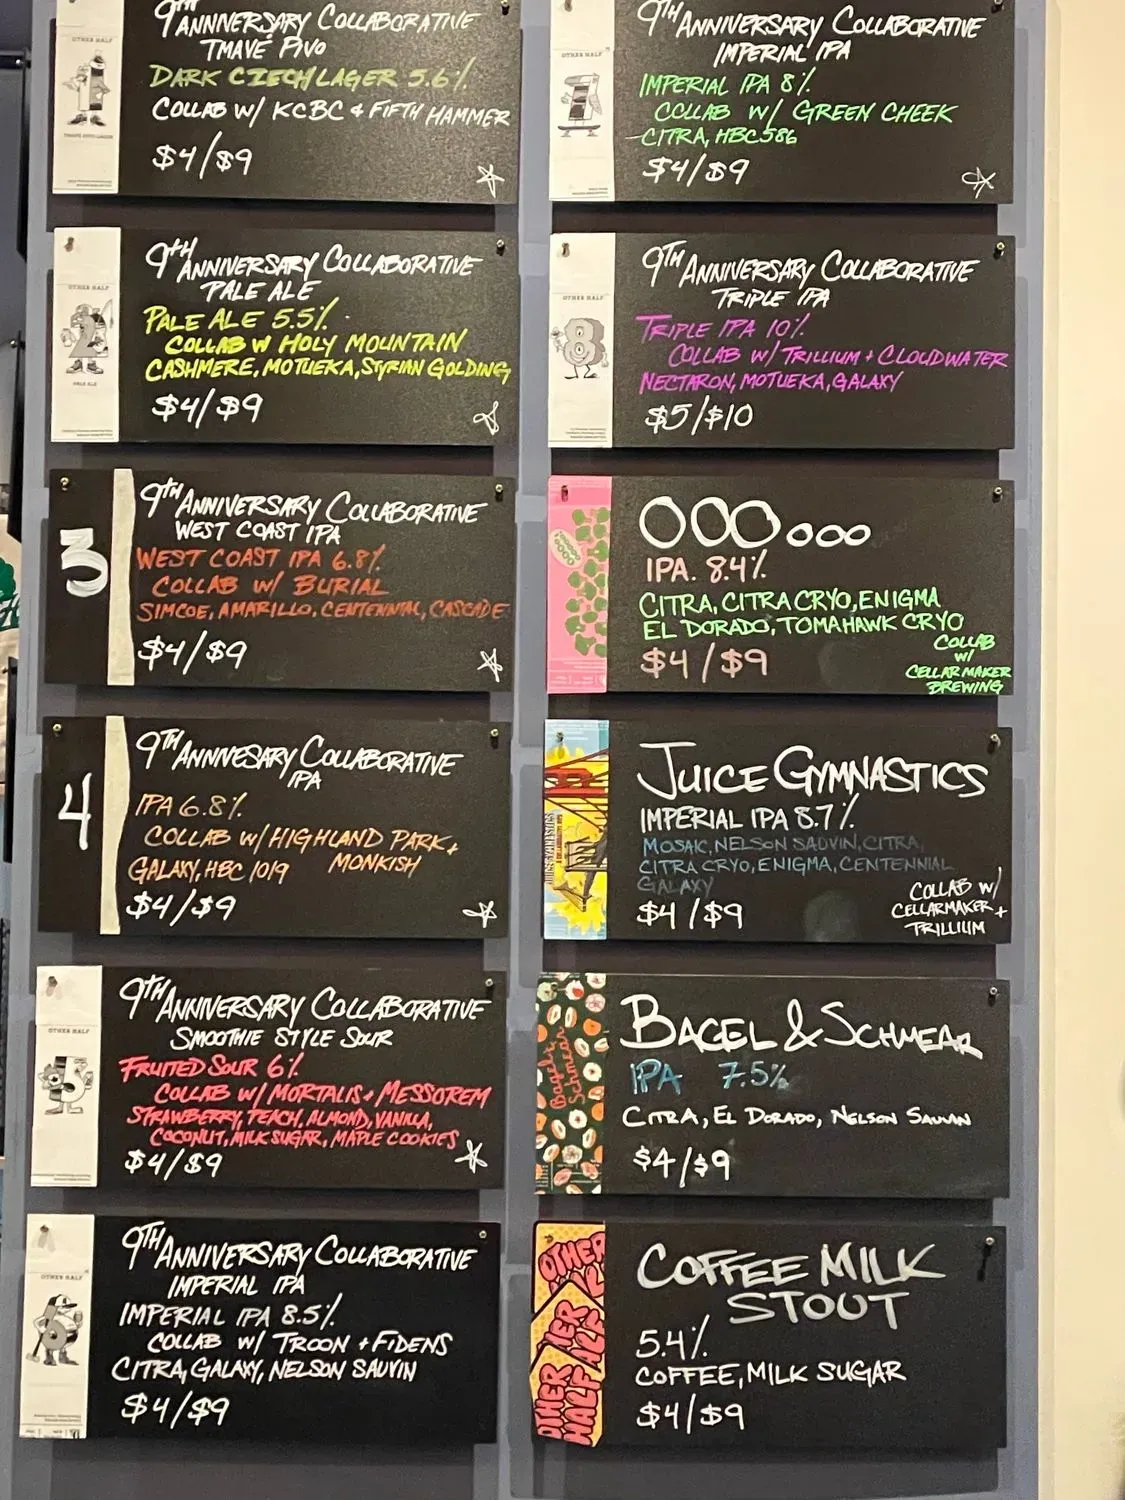 9TH ANNIVERSARY COLLABORATIVE
TMAVÉ PIVO
DARK CZECH LAGER 5.6%
COLLAB W/ KCBC & FIFTH HAMMER
$4/$9
OTHER HALF
9TH ANNIVERSARY COLLABORATIVE
PALE ALE
PALE ALE 5.5%
COLLAB W HOLY MOUNTAIN
CASHMERE, MOTUEKA, STYRIAN GOLDING
$4/$9
OTHER HALF
2
PALE ALE
3
9TH ANNIVERSARY COLLABORATIVE
WEST COAST IPA
WEST COAST IPA 6.8%
COLLAB W/ BURIAL
SIMCOE, AMARILLO, CENTENNIAL, CASCADE
$4/$9
4
9TH ANNIVESARY COLLABORATIVE
IPA
IPA 6.8%
COLLAB W/ HIGHLAND PARK +
MONKISH
GALAXY, HBC 1019
$4/$9
9TH ANNIVERSARY COLLABORATIVE
SMOOTHIE STYLE SOUR
FRUITED SOUR 6%
COLLAB W/ MORTALIS + MESSOREM
STRAWBERRY, PEACH, ALMOND, VANILLA,
COCONUT, MILK SUGAR, MAPLE COOKIES
$4/$9
OTHER HALF
5
9TH ANNIVERSARY COLLABORATIVE
IMPERIAL IPA
IMPERIAL IPA 8.5%
COLLAB W/ TROON + FIDENS
CITRA, GALAXY, NELSON SAUVIN
$4/$9
OTHER HALF
6
9TH ANNIVERSARY COLLABORATIVE
IMPERIAL IPA
IMPERIAL IPA 8%
COLLAB W/ GREEN CHEEK
CITRA, HBC 586
$4/$9
OTHER HALF
7
9TH ANNIVERSARY COLLABORATIVE
TRIPLE IPA
TRIPLE IPA 10%
COLLAB W/ TRILLIUM + CLOUDWATER
NECTARON, MOTUEKA, GALAXY
$5/$10
OTHER HALF
8
OOOooo
IPA. 8.4%
CITRA, CITRA CRYO, ENIGMA
EL DORADO, TOMAHAWK CRYO
$4/$9
COLLAB
W/
CELLARMAKER
BREWING
JUICE GYMNASTICS
IMPERIAL IPA 8.7%
MOSAIC, NELSON SAUVIN, CITRA,
CITRA CRYO, ENIGMA, CENTENNIAL
GALAXY
$4/$9
COLLAB W/
CELLARMAKER +
TRILLIUM
BAGEL & SCHMEAR
IPA 7.5%
CITRA, EL DORADO, NELSON SAUVIN
$4/$9
Bagel & Schmear
COFFEE MILK
STOUT
5.4%
COFFEE, MILK SUGAR
$4/$9
OTHER HALF